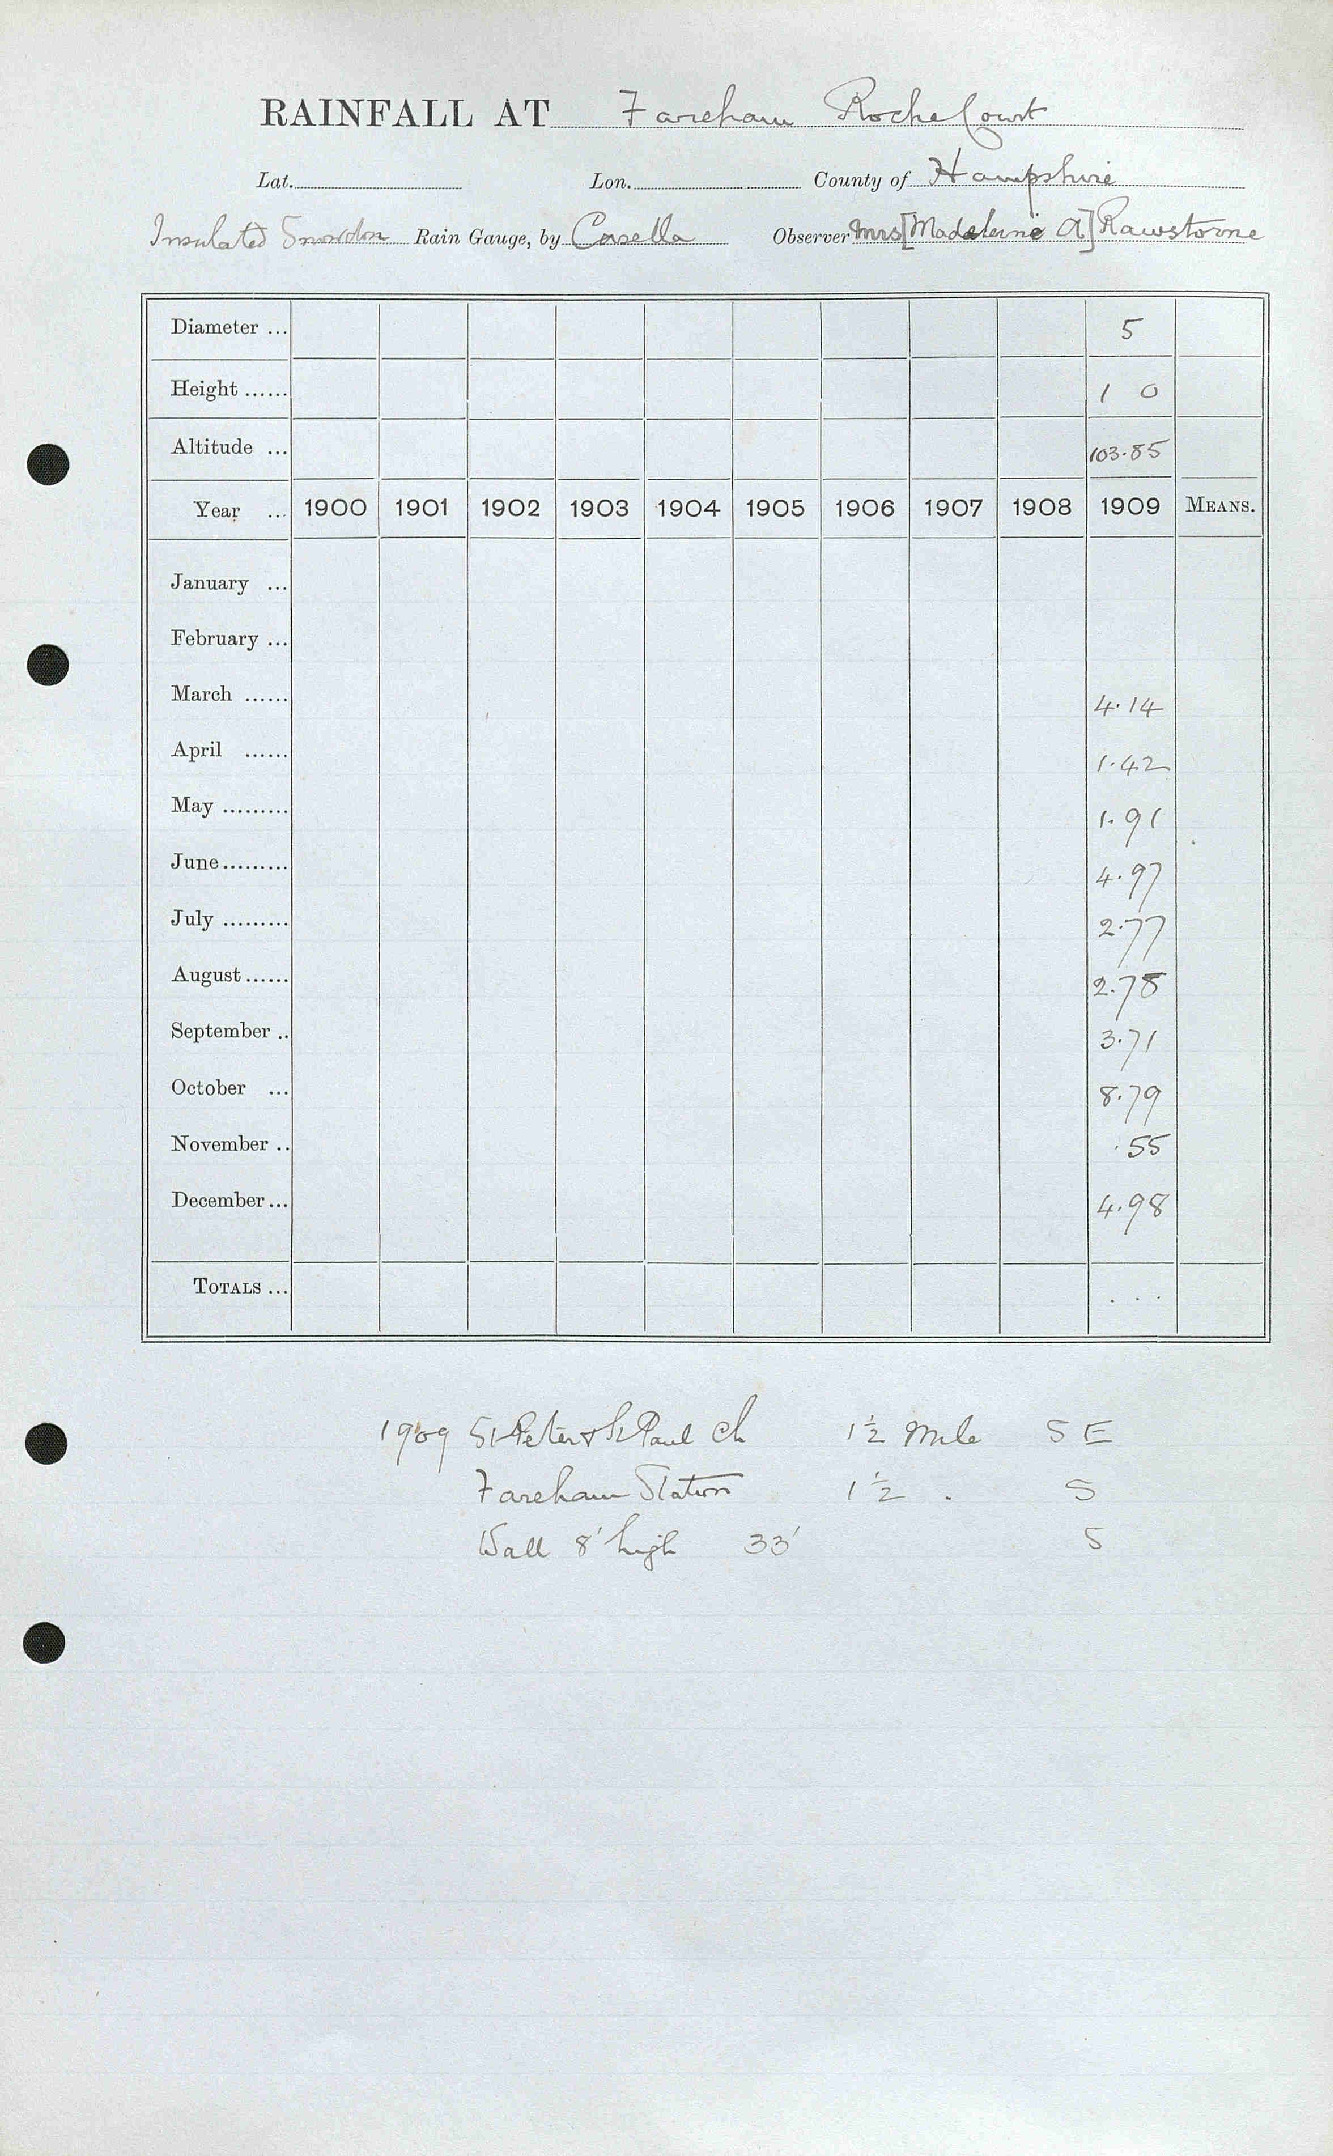 RAINFALL AT Fareham Roche Court
Lat. Lon. County of Hampshire
Insulated Snowdon Rain Gauge, by Casella Observer Mrs [Madeleine A] Rawstorne
Diameter ... 5
Height ...... 1 0
Altitude ... 103.85
Year ... 1900 1901 1902 1903 1904 1905 1906 1907 1908 1909 MEANS.
January ...
February ...
March ...... 4.14
April ...... 1.42
May ......... 1.91
June ......... 4.97
July ......... 2.77
August ...... 2.78
September .. 3.71
October ... 8.79
November .. .55
December ... 4.98
TOTALS ... . . .
1909 St Peter & St Paul Ch 1½ Mile S E
Fareham Station 1½ . S
Wall 8' high 33' S